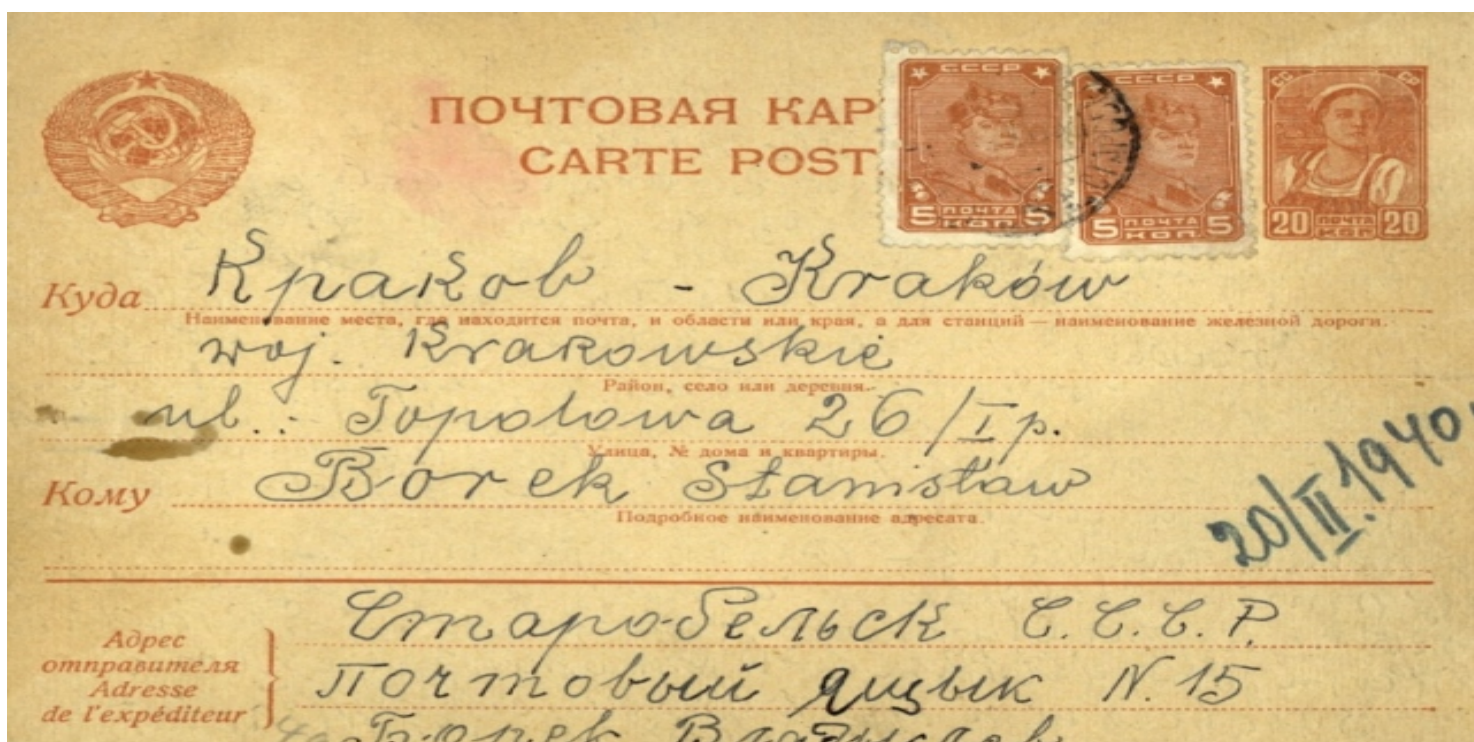 ПОЧТОВАЯ КАР
CARTE POST
СССР
5 ПОЧТА 5
КОП
СССР
5 ПОЧТА 5
КОП
СС СР
20 ПОЧТА 20
КОП.
Куда Краков - Kraków
Наименование места, где находится почта, и области или края, а для станций — наименование железной дороги.
woj. Krakowskie
Район, село или деревня.
ul.: Topolowa 26/I p.
Улица, № дома и квартиры.
Кому Borek Stanisław
Подробное наименование адресата.
20/III.1940.
Адрес отправителя
Adresse de l'expéditeur
Старобельск С.С.С.Р.
почтовый ящык N. 15
Борек Владыслав